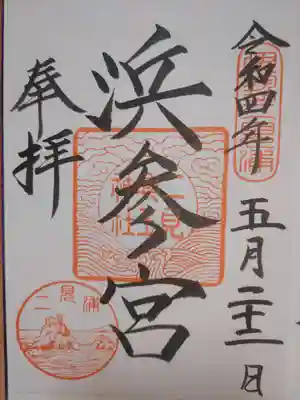 令和四年五月二十二日
浜参宮
奉拝
二見浦